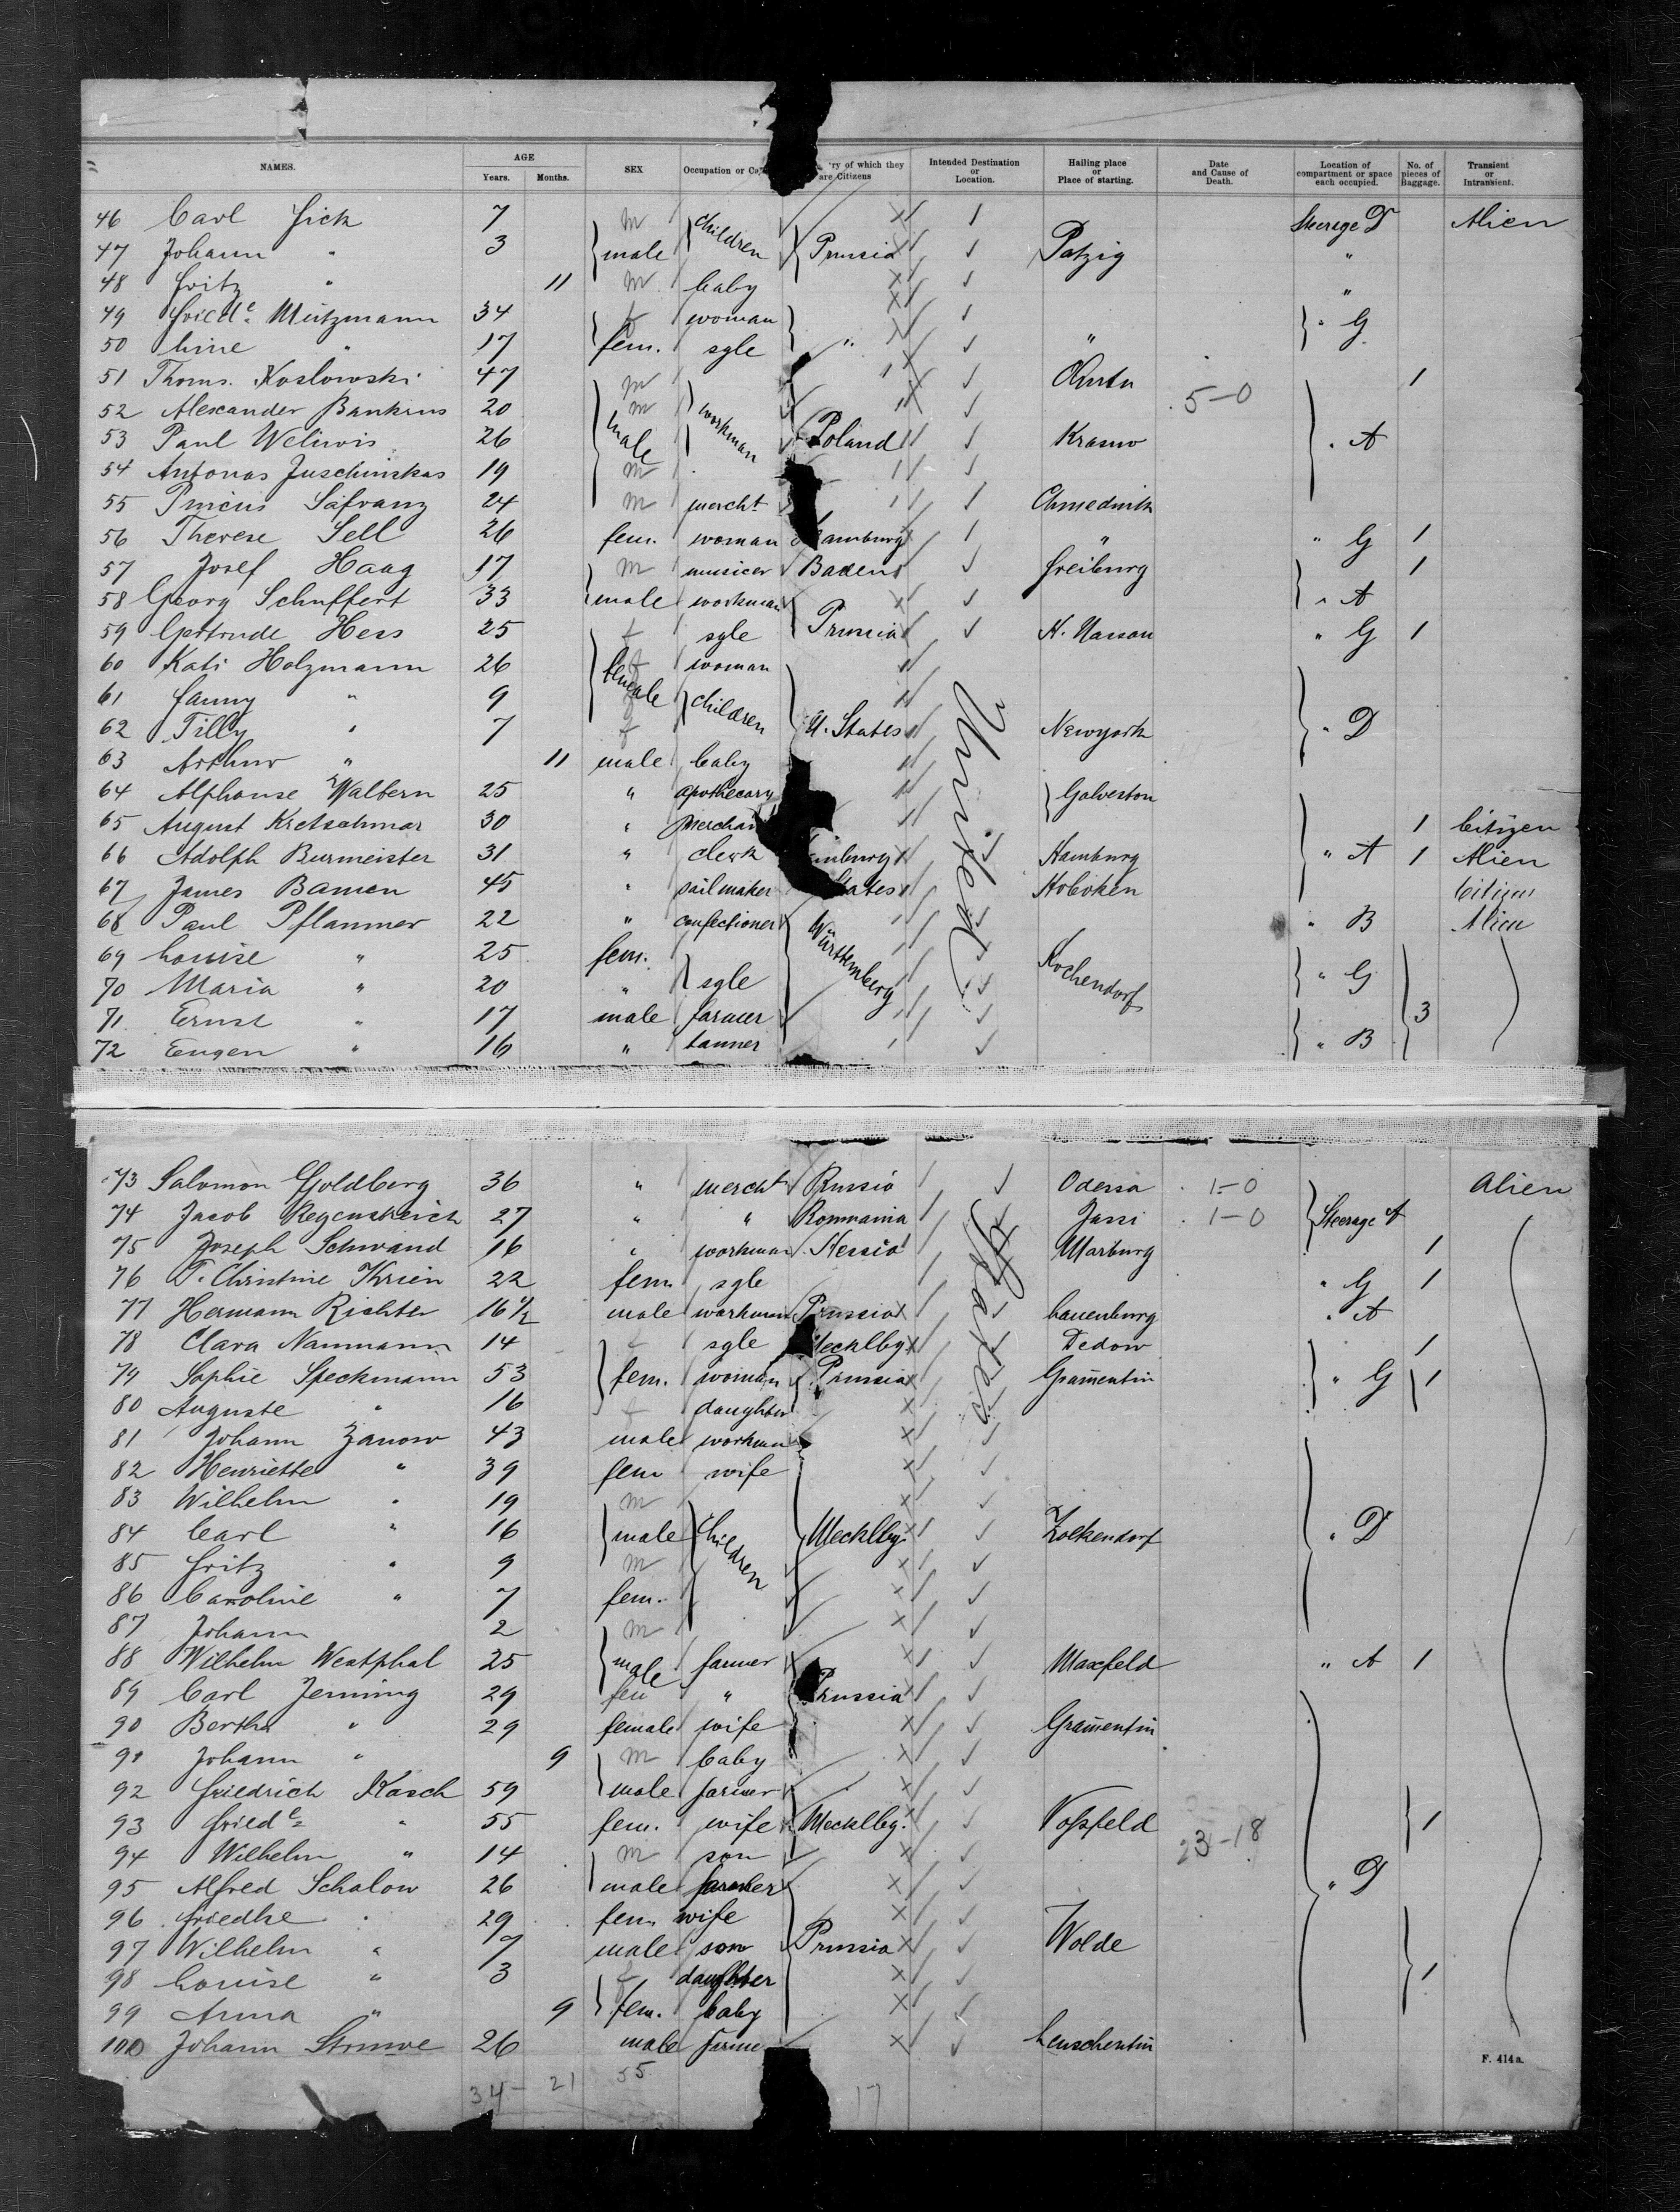 NAMES. AGE SEX Occupation or Ca ry of which they are Citizens Intended Destination or Location. Hailing place or Place of starting. Date and Cause of Death. Location of compartment or space each occupied. No. of pieces of Baggage. Transient or Intransient.
Years. Months.
46 Carl Fick 7 m children Steerage D Alien
47 Johann " 3 male Prussia Patzig "
48 Fritz " 11 m baby "
49 Friedᵉ. Mützmann 34 f woman " G
50 Line " 17 fem. sgle " "
51 Thoms. Koslowski 47 m 1
52 Alexander Bankins 20 m workman 5-0
53 Paul Weliwis 26 male Poland Krasno " A
54 Antonas Juschinskas 19 m
55 Safranz 24 m mercht
56 Therese Sell 26 fem. woman Hamburg " " G 1
57 Josef Haag 17 m musicer Baden Freiburg 1
58 Georg Schuffert 33 male workman " A
59 Gertrude Hess 25 f sgle Prussia H. Nassau " G 1
60 Kati Holzmann 26 f woman
61 Fanny " 9 female children
62 Tilly " 7 f U. States Newyork " D
63 Arthur " 11 male baby
64 Alphonse Walbern 25 " apothecary Galveston
65 August Kretschmar 30 " Merchan 1 Citizen
66 Adolph Burmeister 31 " clerk mburg Hamburg " A 1 Alien
67 James Bamen 45 " sailmaker States Hoboken Citizen
68 Paul Pflammer 22 " confectioner Württemberg " B Alien
69 Louise " 25 fem. United Kochendorf
70 Maria " 20 " sgle " G
71 Ernst " 17 male farmer 3
72 Eugen " 16 " tanner " B
73 Salomon Goldberg 36 " mercht Russia Odessa 1-0 Alien
74 Jacob Regensteich 27 " " Roumania Jassi 1-0 Steerage A
75 Joseph Schwand 16 " workman Hessia Marburg 1
76 T. Christine Krien 22 fem sgle " G 1
77 Hermann Richter 16 1/2 male workman Prussia States Lauenburg " A
78 Clara Naumann 14 f sgle Mecklbg. Dedow 1
79 Sophie Speckmann 53 fem. woman Prussia Gramentin " G 1
80 Auguste " 16 f daughter
81 Johann Zanow 43 male workman
82 Henriette " 39 fem wife
83 Wilhelm " 19 m
84 Carl " 16 male children Mecklbg. Zolkendorf " D
85 Fritz " 9 m
86 Caroline " 7 fem.
87 Johann 2 m
88 Wilhelm Westphal 25 male farmer Maxfeld " A 1
89 Carl Jenning 29 " Prussia
90 Bertha " 29 female wife Gramentin
91 Johann " 9 m baby
92 Friedrich Kasch 59 male farmer
93 Friedᵉ " 55 fem. wife Mecklbg. Voßfeld 1
94 Wilhelm " 14 m son 23-18
95 Alfred Schalow 26 male farmer " D
96 Friedke " 29 fem. wife
97 Wilhelm " 7 male son Prussia Wolde
98 Louise " 3 f daughter 1
99 Anna " 9 fem. baby
100 Johann Struwe 26 male farme Leuschentin
F. 414a.
34- 21 55 17